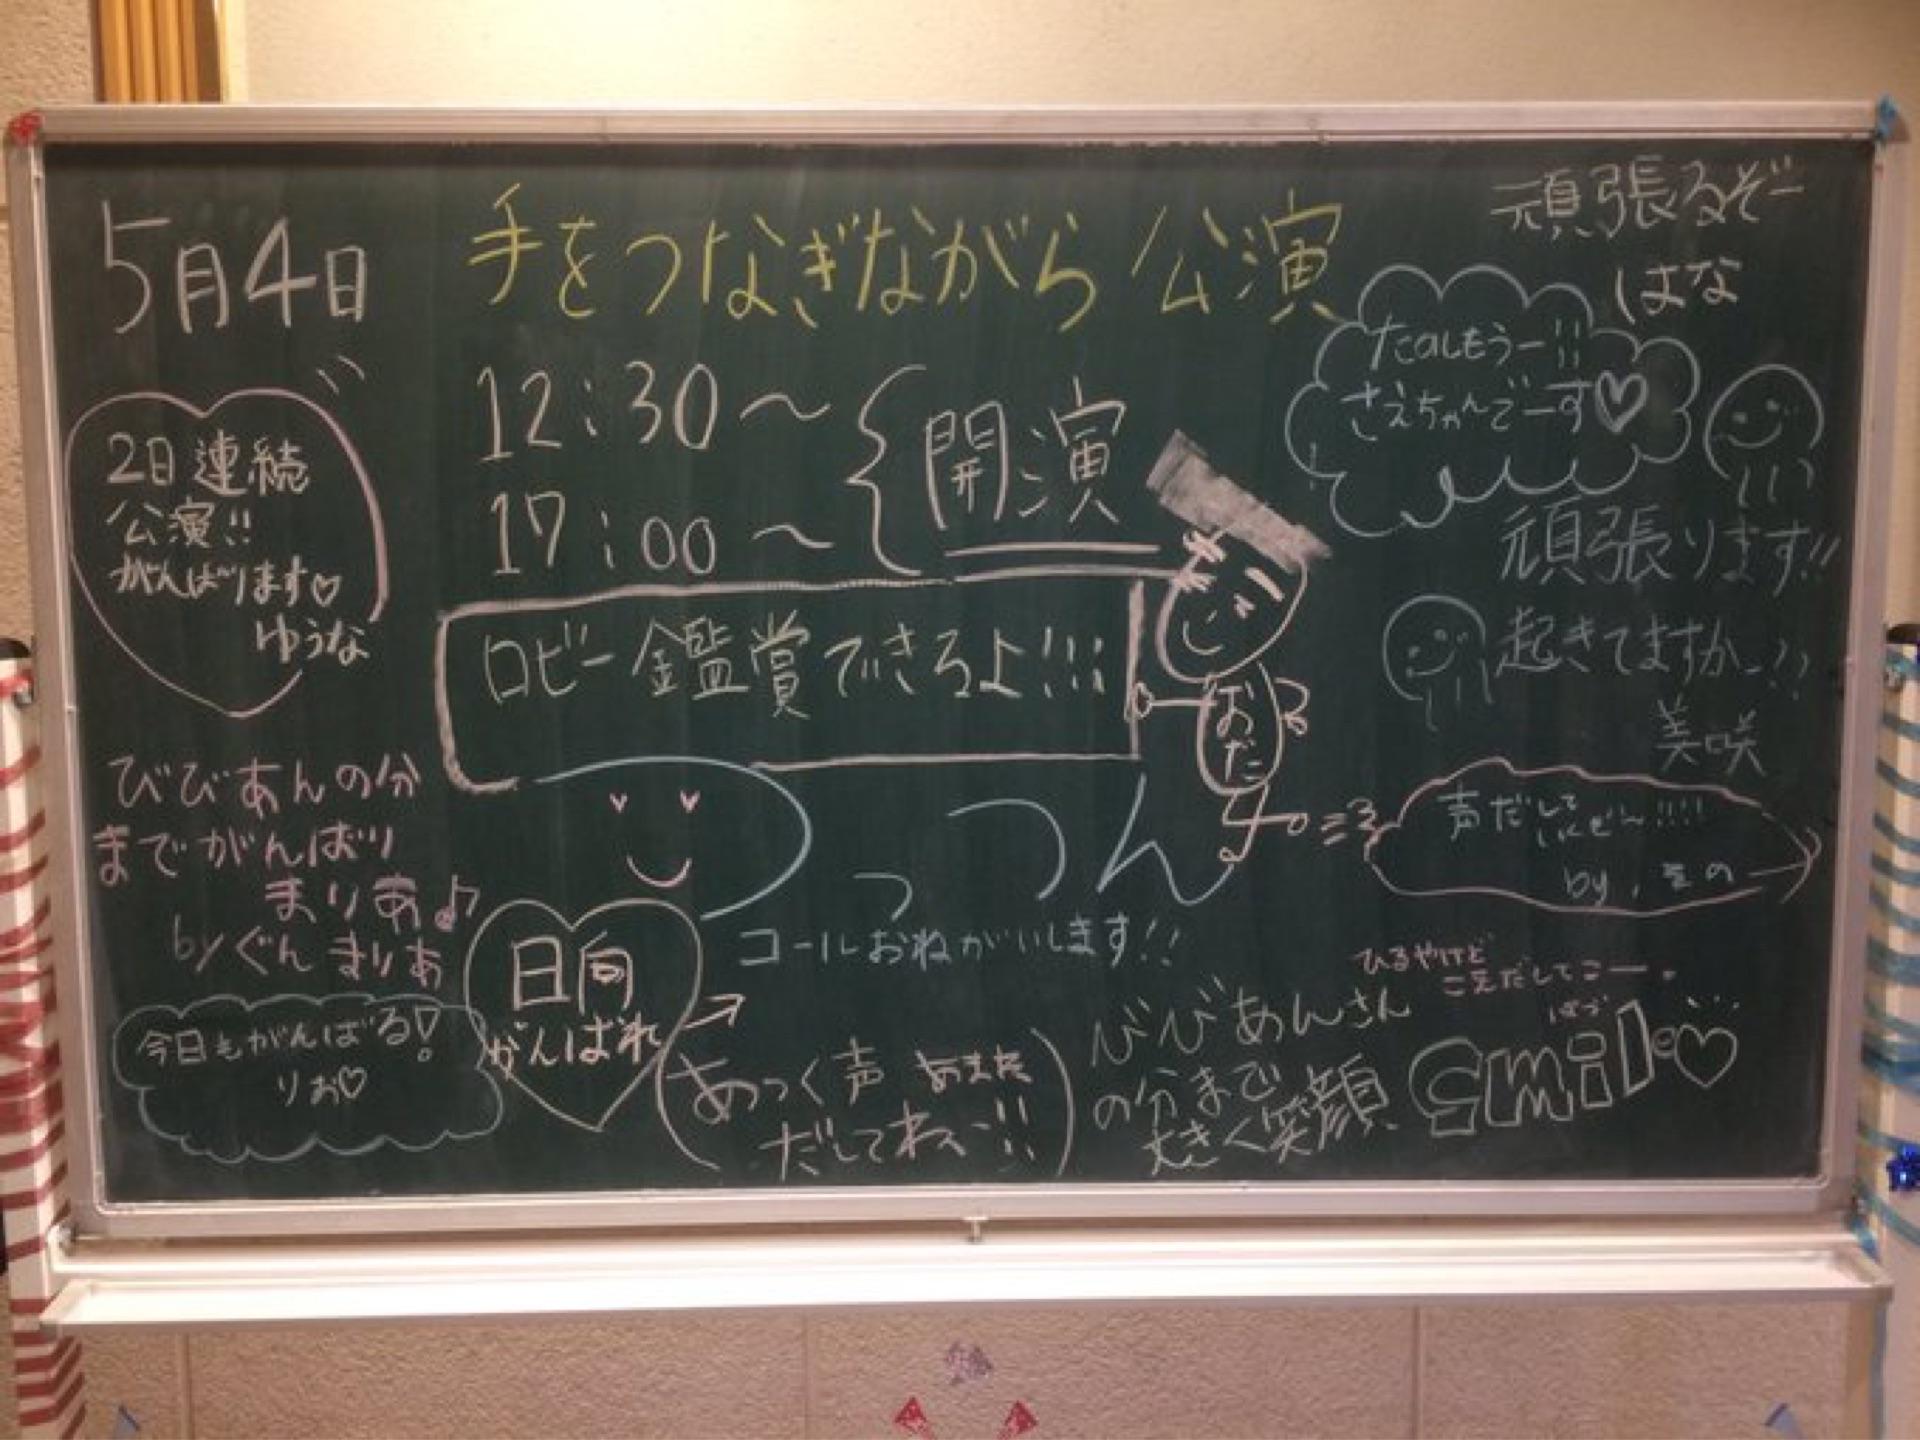 5月4日
手をつなぎながら公演
12:30〜
17:00〜
開演
ロビー鑑賞できるよ!!!
おだ
2日連続
公演!!
がんばります♡
ゆうな
びびあんの分
までがんばり
まりあ♪
byぐんまりあ
今日もがんばる!
りお♡
日向
がんばれ
つっつん
コールおねがいします!!
あつく声
だしてねー!!
びびあんさん
の分まで
大きく笑顔
ひるやけど
こえだしてこー。
smile♡
頑張るぞー
はな
たのしもうー!!
さえちゃんでーす♡
頑張ります!!
起きてますかっ!?
美咲
声だして
いくぜ〜!!!!
by,その